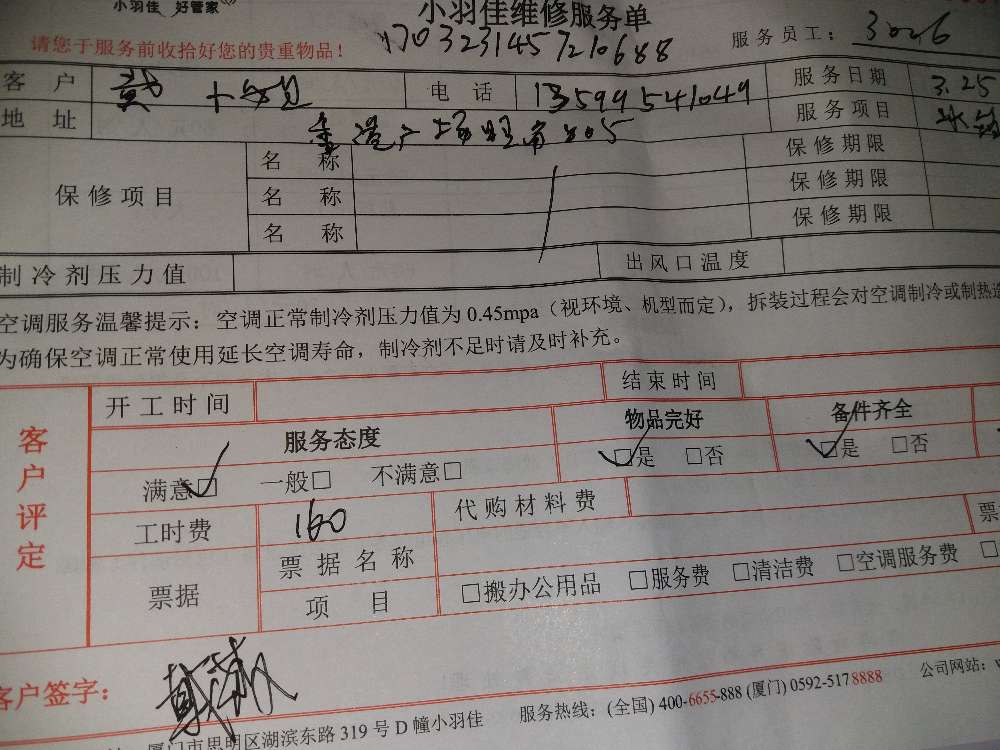 小羽佳 好管家
小羽佳维修服务单
请您于服务前收拾好您的贵重物品！
1703231457210688
服务员工： 3026
客户 戴小姐 电话 13599541049 服务日期 3.25
地址 香港广场 服务项目
保修项目 名称 保修期限
名称 保修期限
名称 保修期限
制冷剂压力值 出风口温度
空调服务温馨提示：空调正常制冷剂压力值为0.45mpa（视环境、机型而定），拆装过程会对空调制冷或制热
为确保空调正常使用延长空调寿命，制冷剂不足时请及时补充。
客户评定
开工时间 结束时间
服务态度 物品完好 备件齐全
满意□ 一般□ 不满意□ □是 □否 □是 □否
工时费 160 代购材料费
票据 票据名称 票
项目 □搬办公用品 □服务费 □清洁费 □空调服务费 □
客户签字：
厦门市思明区湖滨东路319号D幢小羽佳 服务热线：(全国) 400-6655-888 (厦门) 0592-5178888 公司网站：